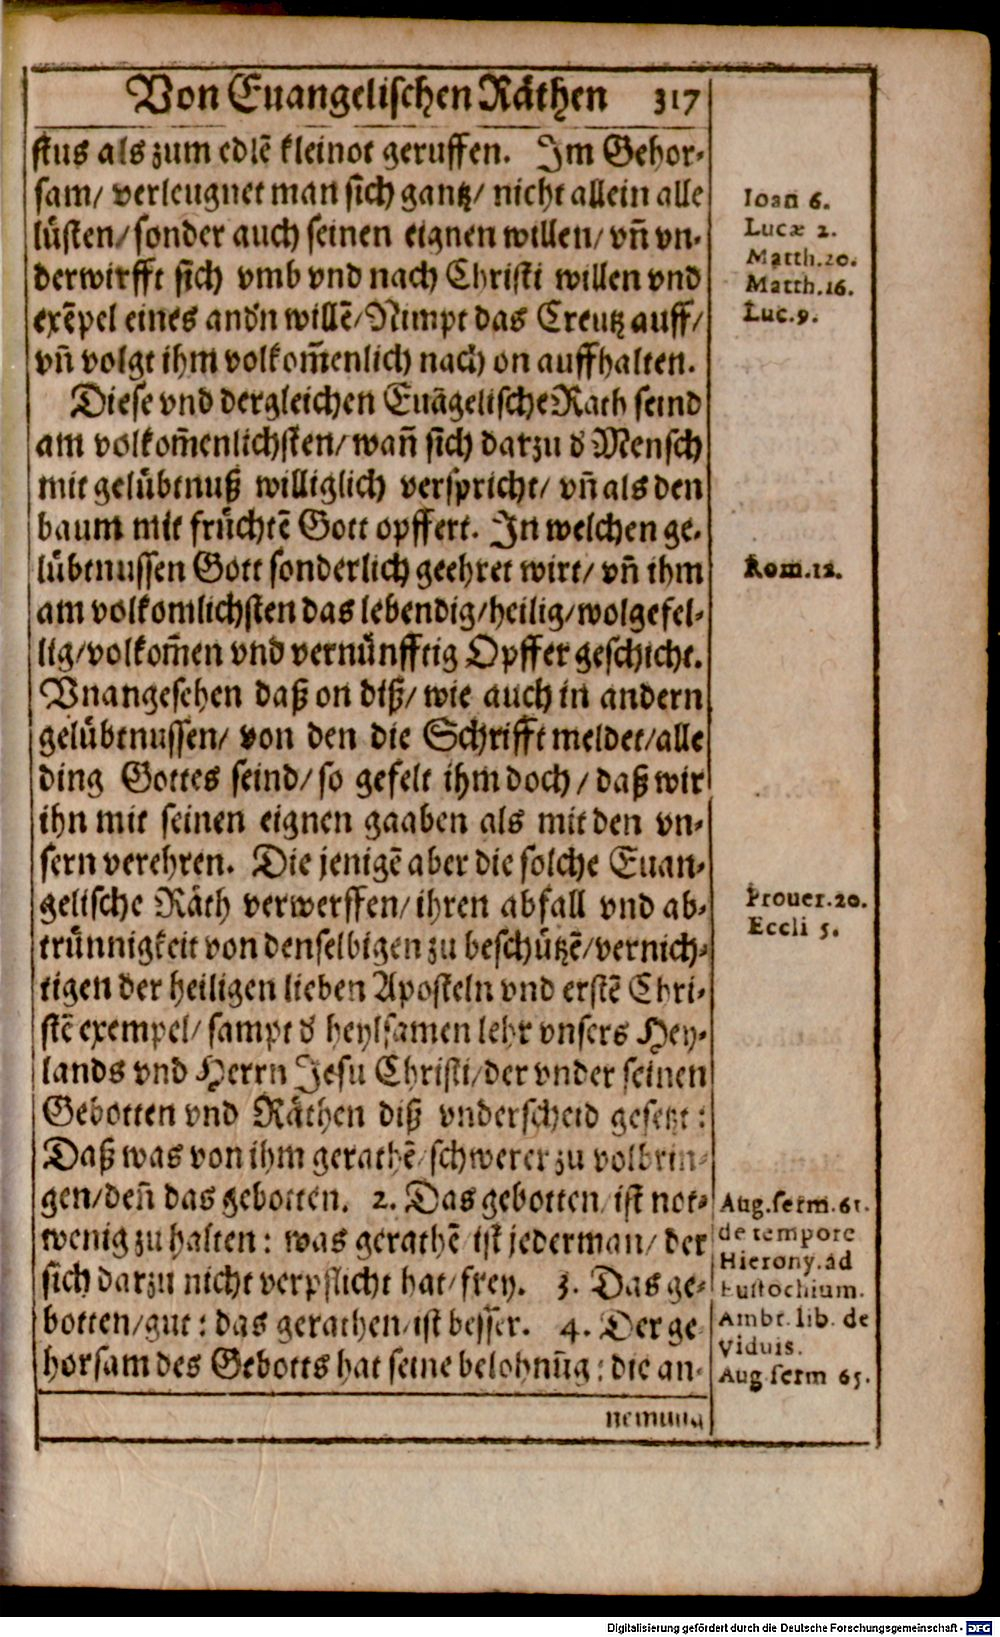 Von Euangelischen Räthen 317
stus als zum edlẽ kleinot geruffen. Im Gehor-
sam/ verleugnet man sich gantz/ nicht allein alle
lüsten/ sonder auch seinen eignen willen/ vñ vn-
derwirfft sich vmb vnd nach Christi willen vnd
exẽpel eines and'n willẽ/ Nimpt das Creutz auff/
vñ volgt ihm volkom̃enlich nach on auffhalten.
Diese vnd dergleichen Euãgelische Räth seind
am volkom̃enlichsten/ wañ sich darzu d' Mensch
mit gelübtnuß williglich verspricht/ vñ als den
baum mit früchtẽ Gott opffert. In welchen ge-
lübtnussen Gott sonderlich geehret wirt/ vñ ihm
am volkomlichsten das lebendig/ heilig/ wolgefel-
lig/ volkom̃en vnd vernünfftig Opffer geschicht.
Vnangesehen daß on diß/ wie auch in andern
gelübtnussen/ von den die Schrifft meldet/ alle
ding Gottes seind/ so gefelt ihm doch/ daß wir
ihn mit seinen eignen gaaben als mit den vn-
sern verehren. Die jenigẽ aber die solche Euan-
gelische Räth verwerffen/ ihren abfall vnd ab-
trünnigkeit von denselbigen zu beschützẽ/ vernich-
tigen der heiligen lieben Aposteln vnd erstẽ Chri-
stẽ exempel/ sampt d' heylsamen lehr vnsers Hey-
lands vnd Herrn Jesu Christi/ der vnder seinen
Gebotten vnd Räthen diß vnderscheid gesetzt:
Daß was von ihm gerathẽ/ schwerer zu volbrin-
gen/ deñ das gebotten. 2. Das gebotten/ ist not-
wenig zu halten: was gerathẽ/ ist jederman/ der
sich darzu nicht verpflicht hat/ frey. 3. Das ge-
botten/ gut: das gerathen/ ist besser. 4. Der ge
horsam des Gebotts hat seine belohnũg: die an-
nemung
Ioan 6.
Lucæ 2.
Matth.20.
Matth.16.
Luc.9.
Rom.12.
Prouer.20.
Eccli 5.
Aug.serm.61.
de tempore
Hierony.ad
Eustochium.
Ambr. lib. de
Viduis.
Aug serm 65.
Digitalisierung gefördert durch die Deutsche Forschungsgemeinschaft - DFG